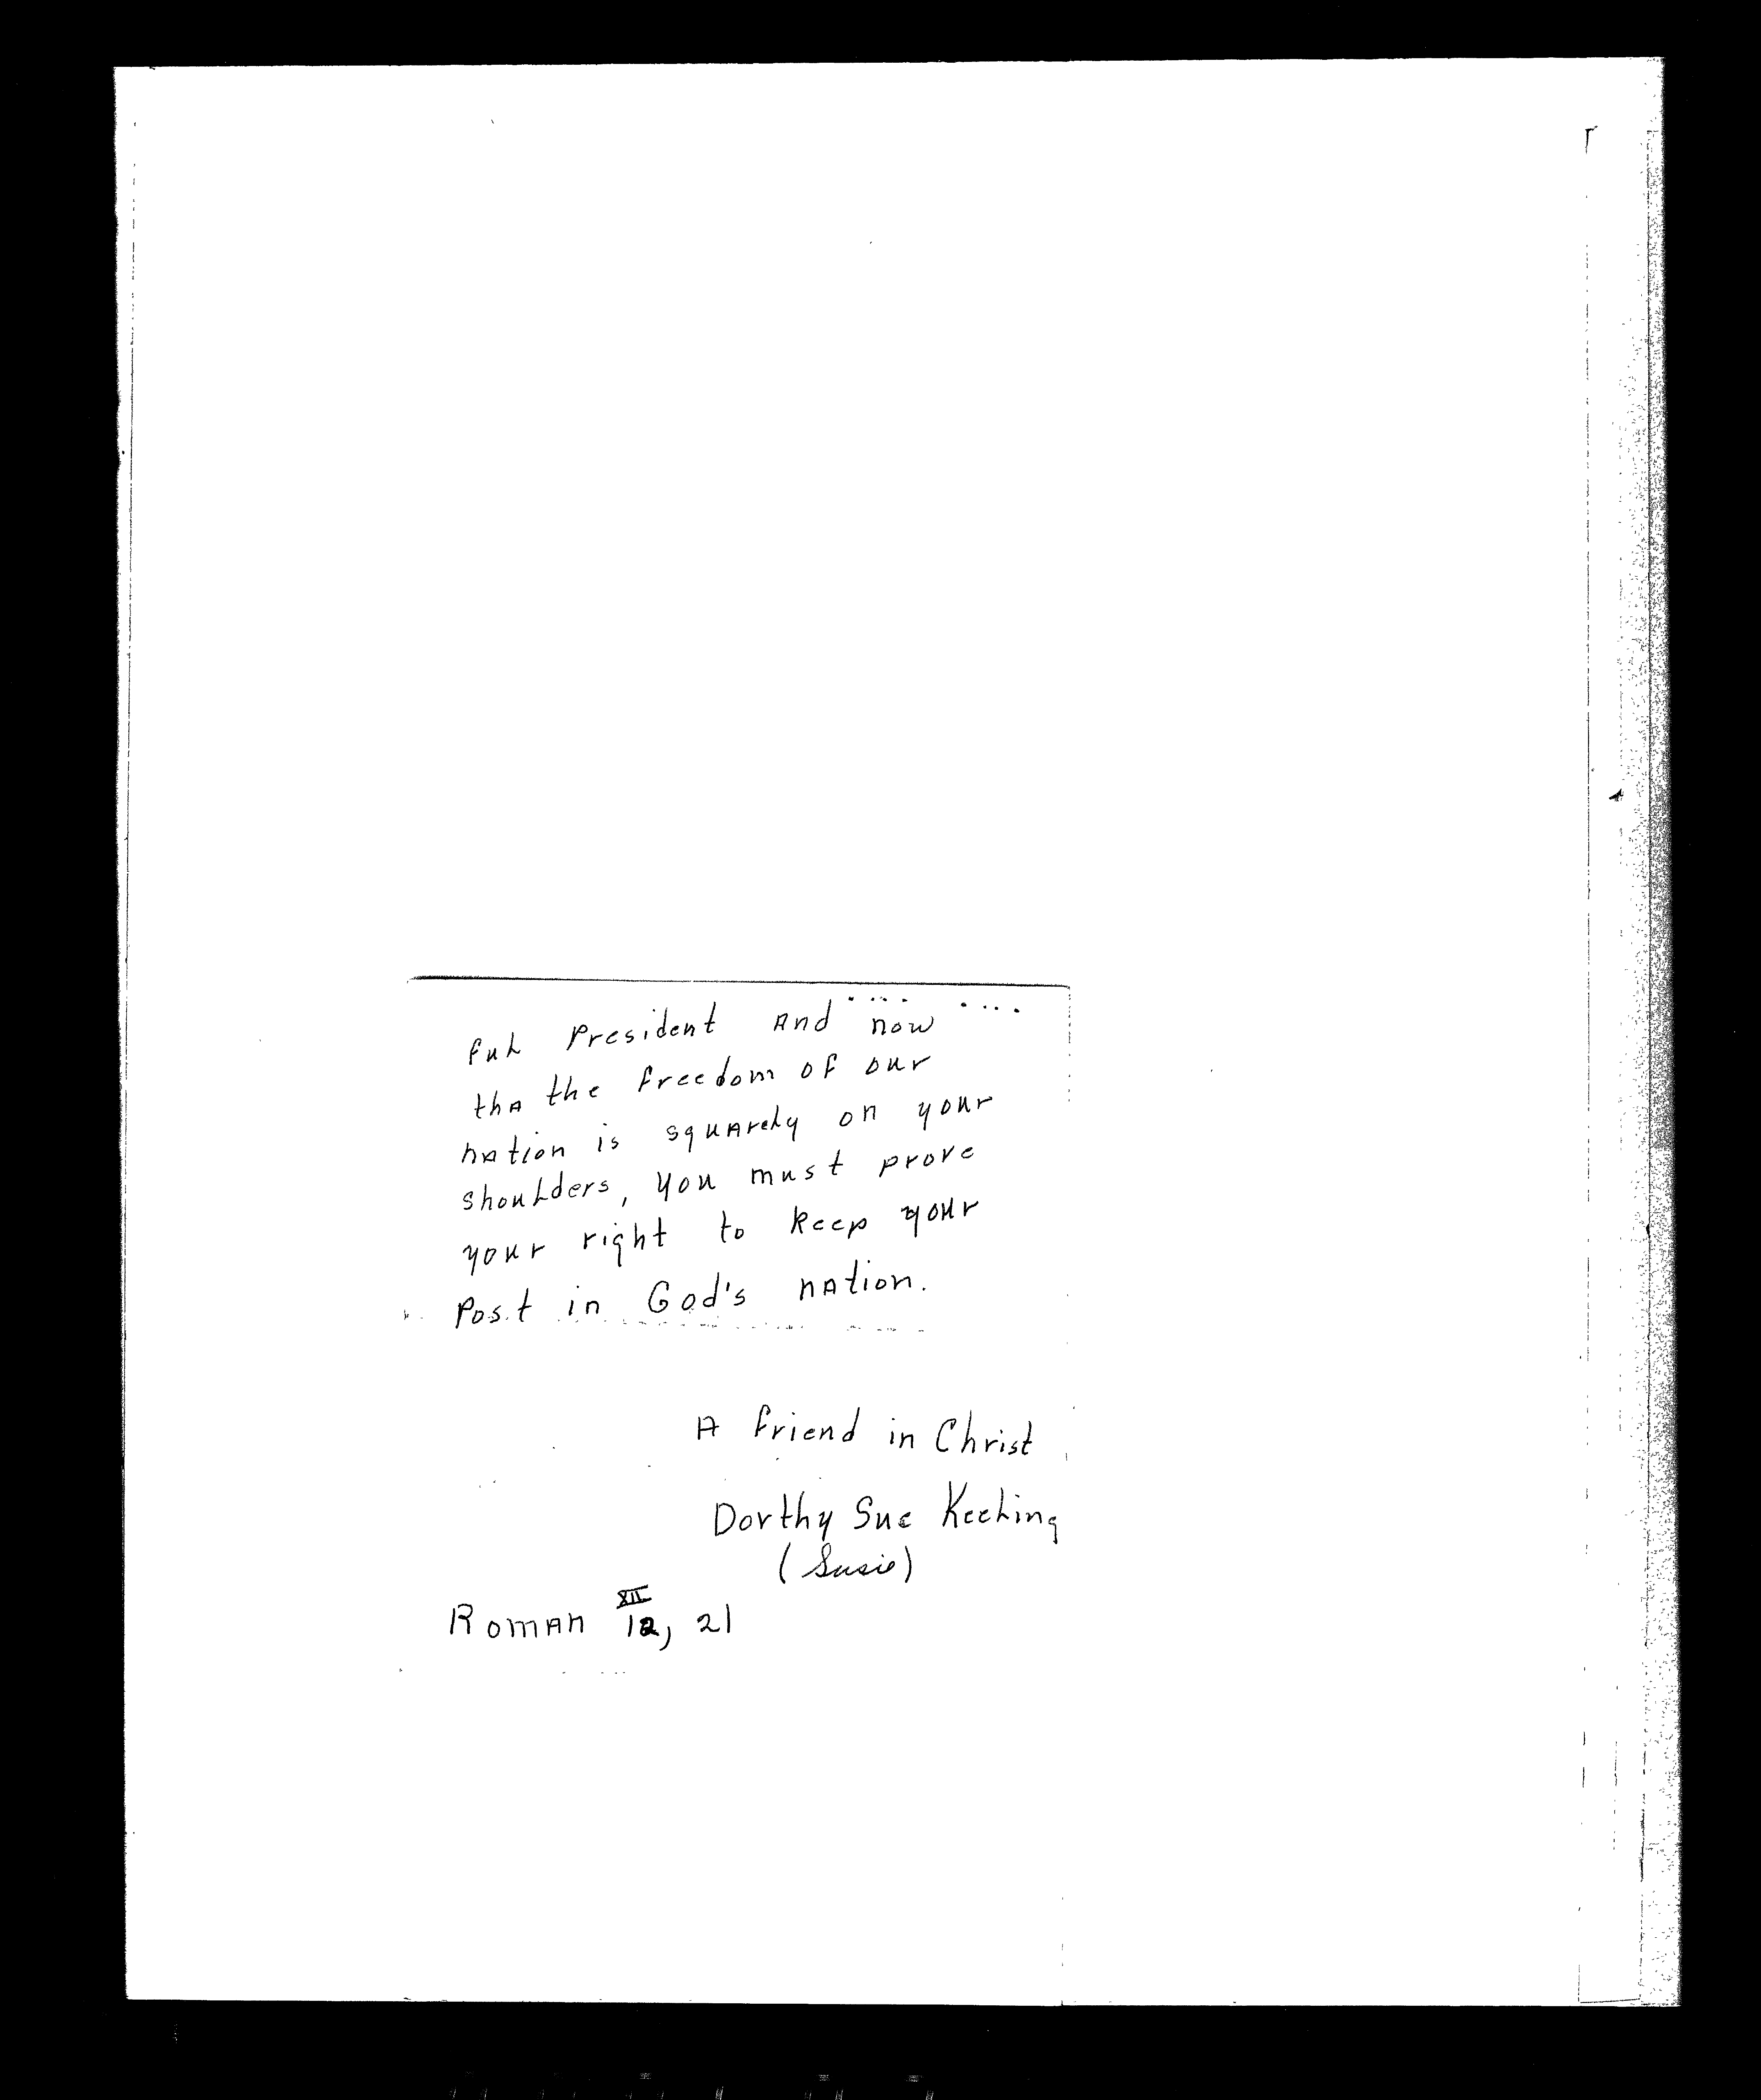 ful President And now
tha the freedom of our
nation is squarely on your
shoulders, you must prove
your right to keep your
Post in God's nation.
A friend in Christ
Dorthy Sue Keeling
(Susie)
XII
Roman 12, 21